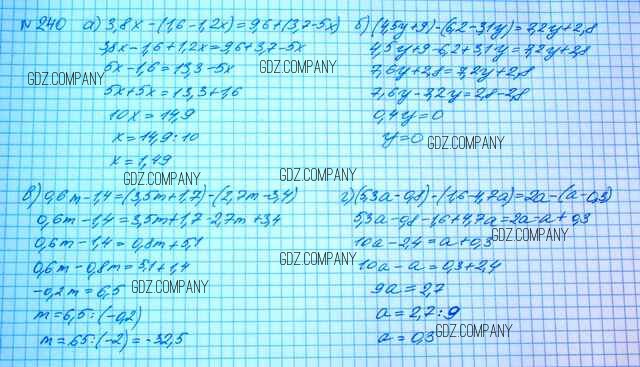 №240 а) 3,8x-(1,6-1,2x)=9,6+(3,7-5x)
3,8x-1,6+1,2x=9,6+3,7-5x
5x-1,6=13,3-5x
5x+5x=13,3+1,6
10x=14,9
x=14,9:10
x=1,49
б) (4,5y+9)-(6,2-3,1y)=7,2y+2,8
4,5y+9-6,2+3,1y=7,2y+2,8
7,6y+2,8=7,2y+2,8
7,6y-7,2y=2,8-2,8
0,4y=0
y=0
в) 0,6m-1,4=(3,5m+1,7)-(2,7m-3,4)
0,6m-1,4=3,5m+1,7-2,7m+3,4
0,6m-1,4=0,8m+5,1
0,6m-0,8m=5,1+1,4
-0,2m=6,5
m=6,5:(-0,2)
m=65:(-2)=-32,5
г) (5,3a-0,8)-(1,6-4,7a)=2a-(a-0,3)
5,3a-0,8-1,6+4,7a=2a-a+0,3
10a-2,4=a+0,3
10a-a=0,3+2,4
9a=2,7
a=2,7:9
a=0,3
GDZ.COMPANY
GDZ.COMPANY
GDZ.COMPANY
GDZ.COMPANY
GDZ.COMPANY
GDZ.COMPANY
GDZ.COMPANY
GDZ.COMPANY
GDZ.COMPANY